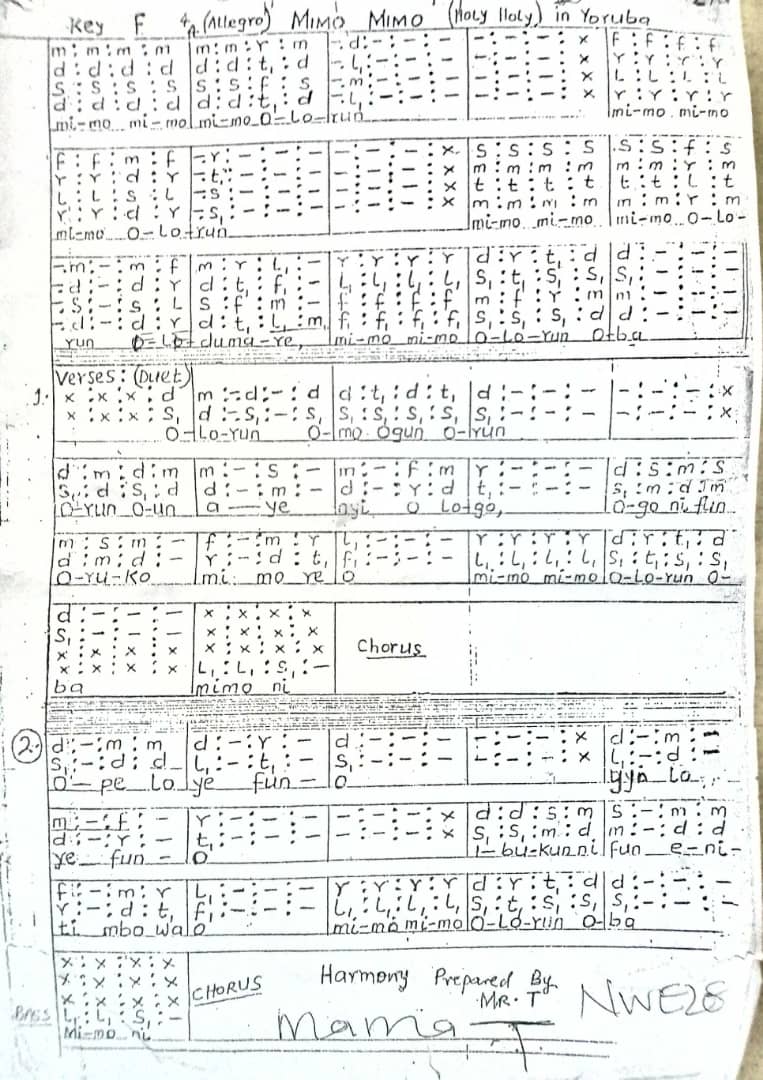 Key F 4/4 (Allegro) MIMO MIMO (Holy Holy) in Yoruba
m : m : m : m | m : m : r : m | - d : - : - : - | - : - : - : x | f : f : f : f
d : d : d : d | d : d : t, : d | - L, : - : - : - | - : - : - : x | r : r : r : r
s : s : s : s | s : s : f : s | - m : - : - : - | - : - : - : x | L : L : L : L
d : d : d : d | d : d : t, : d | - L, : - : - : - | - : - : - : x | r : r : r : r
mi-mo mi-mo | mi-mo O-Lo-run | mi-mo mi-mo
f : f : m : f | - r : - : - : - | - : - : - : x | s : s : s : s | s : s : f : s
r : r : d : r | - t, : - : - : - | - : - : - : x | m : m : m : m | m : m : r : m
L : L : s : L | - s : - : - : - | - : - : - : x | t : t : t : t | t : t : L : t
r : r : d : r | - s, : - : - : - | - : - : - : x | m : m : m : m | m : m : r : m
mi-mo O-Lo-run | mi-mo mi-mo | mi-mo O-Lo-
- m : - : m : f | m : r : L, : - | r : r : r : r | d : r : t, : d | d : - : - : -
- d : - : d : r | d : t, : f, : - | L, : L, : L, : L, | s, : t, : s, : s, | s, : - : - : -
- s : - : s : L | s : f : m : - | f : f : f : f | m : f : r : m | m : - : - : -
- d : - : d : r | d : t, : L, : m, | f, : f, : f, : f, | s, : s, : s, : d | d : - : - : -
run O-Lo-duma-re, | mi-mo mi-mo | O-Lo-run O-ba
Verses : (Duet)
1. x : x : x : d | m : - d : - : d | d : t, : d : t, | d : - : - : - | - : - : - : x
x : x : x : s, | d : - s, : - : s, | s, : s, : s, : s, | s, : - : - : - | - : - : - : x
O-Lo-run O-mo Ogun O-run
d : m : d : m | m : - : s : - | m : - : f : m | r : - : - : - | d : s : m : s
s, : d : s, : d | d : - : m : - | d : - : r : d | t, : - : - : - | s, : m : d : m
O-run O-un | a — ye | nyi o lo-go, | O-go ni fun
m : s : m : - | f : - : m : r | L, : - : - : - | r : r : r : r | d : r : t, : d
d : m : d : - | r : - : d : t, | f, : - : - : - | L, : L, : L, : L, | s, : t, : s, : s,
O-ru-ko | mi mo re | o | mi-mo mi-mo | O-Lo-run O-
d : - : - : - | x : x : x : x
s, : - : - : - | x : x : x : x
x : x : x : x | x : x : x : x | Chorus
x : x : x : x | L, : L, : s, : -
ba | mimo ni
2. d : - : m : m | d : - : r : - | d : - : - : - | - : - : - : x | d : - : m : -
s, : - : d : d | L, : - : t, : - | s, : - : - : - | - : - : - : x | L, : - : d : -
O- pe lo | ye fun - | o | Iyin lo
m : - : f : - | r : - : - : - | - : - : - : x | d : d : s : m | s : - : m : m
d : - : r : - | t, : - : - : - | - : - : - : x | s, : s, : m : d | m : - : d : d
ye fun - | o | I-bu-kun ni | fun e-ni-
f : - : m : r | L, : - : - : - | r : r : r : r | d : r : t, : d | d : - : - : -
r : - : d : t, | f, : - : - : - | L, : L, : L, : L, | s, : t, : s, : s, | s, : - : - : -
ti mbo wa | o | mi-mo mi-mo | O-Lo-run O-ba
x : x : x : x
x : x : x : x
x : x : x : x
BASS L, : L, : s, : -
Mi-mo ni
CHORUS
Harmony Prepared By
MR. T
Mama T